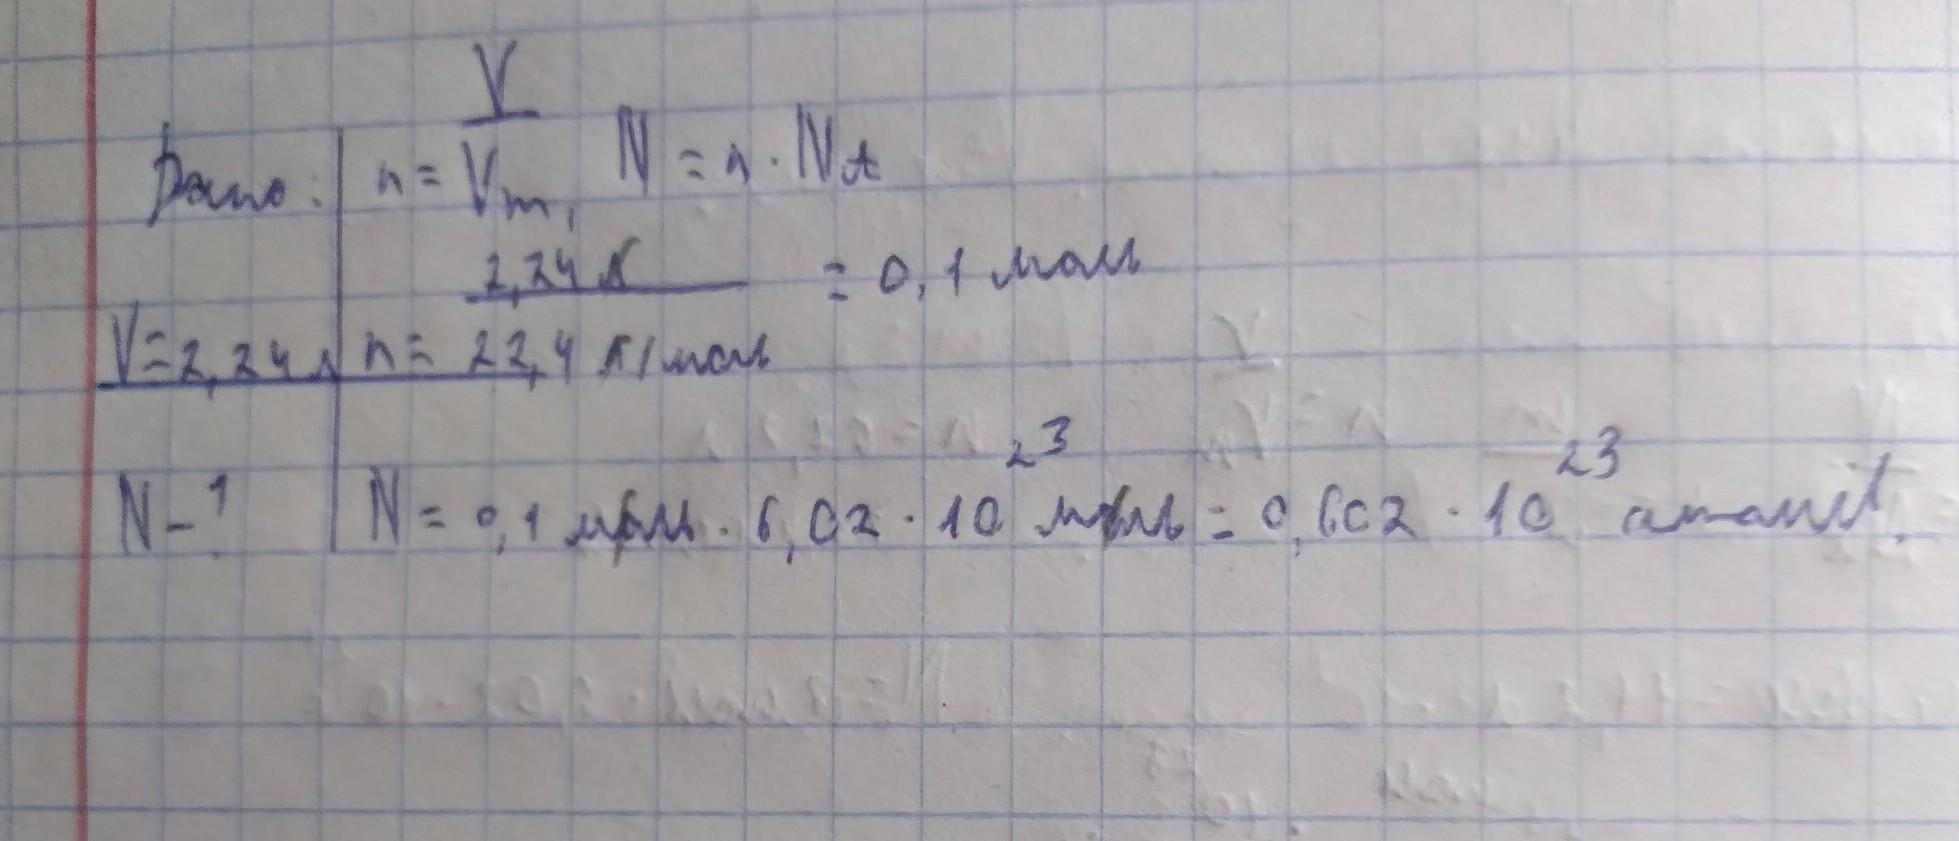 Дано: n = V/Vm, N = n · NA
V = 2,24 л n = 2,24 л / 22,4 л/моль = 0,1 моль
N - ? N = 0,1 моль · 6,02 · 10²³ моль = 0,602 · 10²³ атомів.